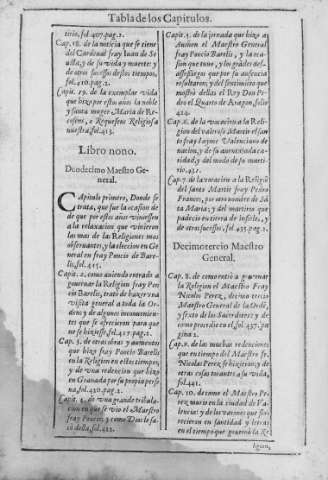 Tabla de los Capitulos.
tirio, fol.407.pag.2.
Cap. 18. de la noticia que se tiene
del Cardenal fray Juan de
y de su vida y muerte: y
de otros sucessos destos tiempos,
fol.410.pag.2.
Capit. 19. de la exemplar vida
que hizo por estos años la noble
y santa muger Maria de Re-
o Requesens Religiosa
nuestra, fol.413.
Libro nono.
Duodecimo Maestro Ge-
neral.
Capitulo primero, Donde se
trata, que fue la ocasion de
que por estos años viniessen
a la relaxacion que vinieron
las mas de las Religiones mas
observantes, y la eleccion en Ge-
neral en fray Poncio de Bare-
lis, fol.415.
Capit. 2. como auiendo entrado a
gouernar la Religion fray Pon-
cio Barelis, trató de hazer vna
visita general a toda la Or-
den; y de algunos inconuenien-
tes que se ofrecieron para que
no se hiziesse, fol.417.pag.2.
Cap. 3. de otras obras y aumentos
que hizo fray Poncio Barelis
en la Religion en estos tiempos,
y de vna redencion que hizo
en Granada por su propia perso
na, fol.420.pag.2.
Capit. 4. de vna grande tribula-
cion en que se vio el Maestro
fray Poncio, y como Dios le sa-
có della, fol.422.
Capit. 5. de la jornada que hizo a
el Maestro General
fray Poncio Barelis, y la oca-
sion que tuuo, y los grandes des-
assossiegos que por su ausencia
resultaron; y del sentimiento que
mostró dellas el Rey Don Pe-
dro el Quarto de Aragon, folio
424.
Cap. 6. de la vocacion a la Reli-
gion del valeroso Martir el san-
to fray Iayme Valenciano de
nacion, y de su auentajada ca-
ridad, y del modo de su marti-
rio, 431.
Cap. 7. de la vocacion a la Religió
del santo Martir fray Pedro
Frances, por otro nombre de Sá
ta Maria; y del martirio que
padecio en tierra de infieles, y
de otros sucessos, fol.435.pag.2.
Decimotercio Maestro
General.
Cap. 8. de como entró a gouernar
la Religion el Maestro Fray
Nicolas Perez, decimo tercio
Maestro General de la Ordé,
y sexto de los Sacerdotes; y de
como procedio en el, fol.437.pa
gina 2.
Cap. 9. de las muchas redenciones
que en tiempo del Maestro fr.
Nicolas Perez se hizieron; y de
otras cosas tocantes a su vida,
fol.441.
Cap. 10. de como el Maestro Pe-
rez murio en la ciudad de Va-
lencia: y de los varones que flo-
recieron en santidad y letras
en el tiempo que gouernó la Re
ligion,